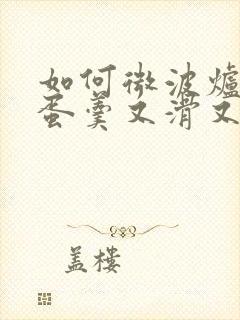 如何微波爐
蛋羹又滑又
盖樓